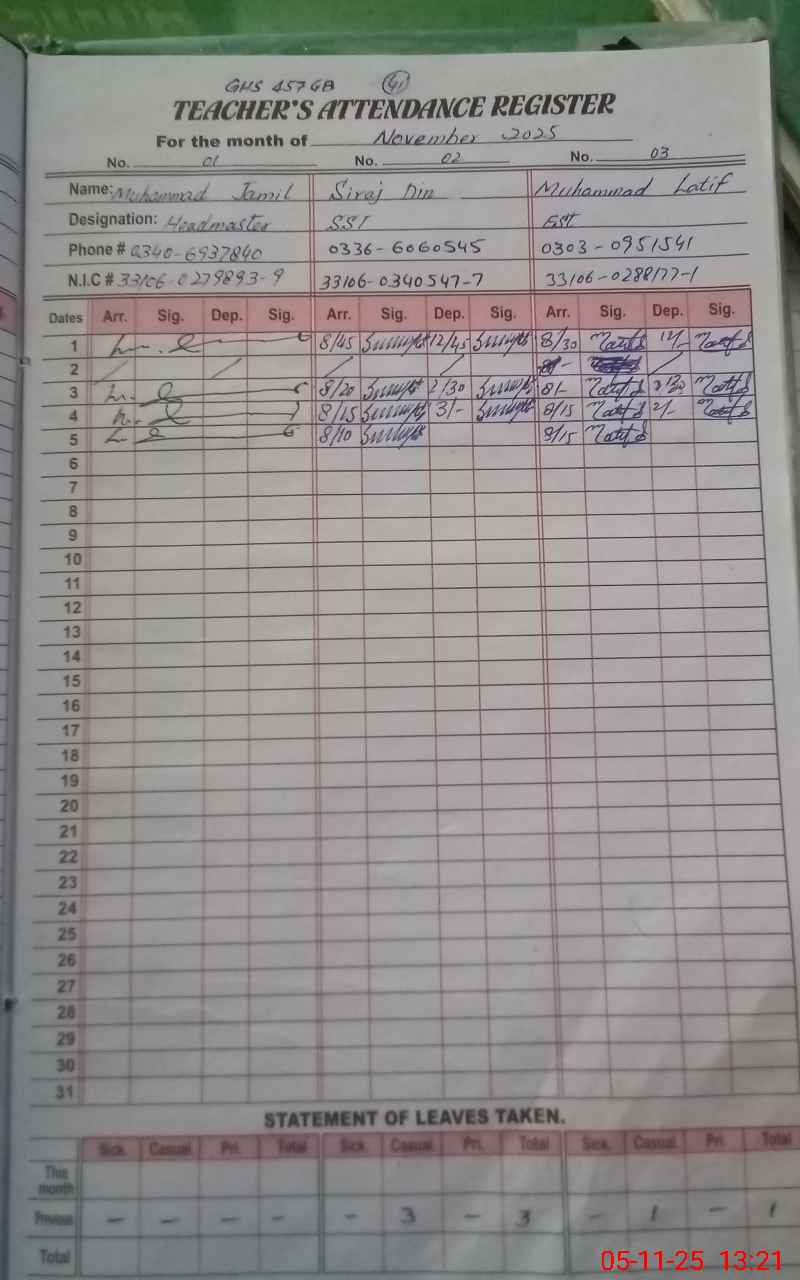 GHS 457GB 41
TEACHER'S ATTENDANCE REGISTER
For the month of November 2025
No. 01 No. 02 No. 03
Name: Muhammad Jamil Siraj Din Muhammad Latif
Designation: Headmaster SST EST
Phone # 0340-6937840 0336-6060545 0303-0951541
N.I.C # 33106-0279893-9 33106-0340547-7 33106-0288177-1
Dates Arr. Sig. Dep. Sig. Arr. Sig. Dep. Sig. Arr. Sig. Dep. Sig.
1 8/45 12/45 8/30 12/-
2
3 8/20 2/30 8/-
4 8/15 3/- 8/15 2/-
5 8/10 8/15
6
7
8
9
10
11
12
13
14
15
16
17
18
19
20
21
22
23
24
25
26
27
28
29
30
31
STATEMENT OF LEAVES TAKEN.
Sick. Casual Pri. Total Sick. Casual Pri. Total Sick. Casual Pri. Total
This month
Previous - - - - - 3 - 3 - 1 - 1
Total
05-11-25 13:21